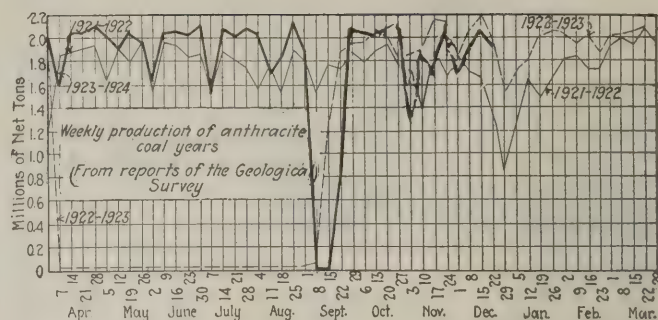 2.2
2.0
1.8
1.6
1.4
1.2
1.0
0.8
0.6
0.4
0.2
0
Millions of Net Tons
1921-1922
1923-1924
1922-1923
1922-1923
1921-1922
Weekly production of anthracite
coal years
(From reports of the Geological
Survey)
7 14 21 28 5 12 19 26 2 9 16 23 30 7 14 21 28 4 11 18 25 1 8 15 22 29 6 13 20 27 3 10 17 24 1 8 15 22 29 5 12 19 26 2 9 16 23 1 8 15 22 29
Apr May June July Aug. Sept. Oct. Nov. Dec. Jan. Feb. Mar.